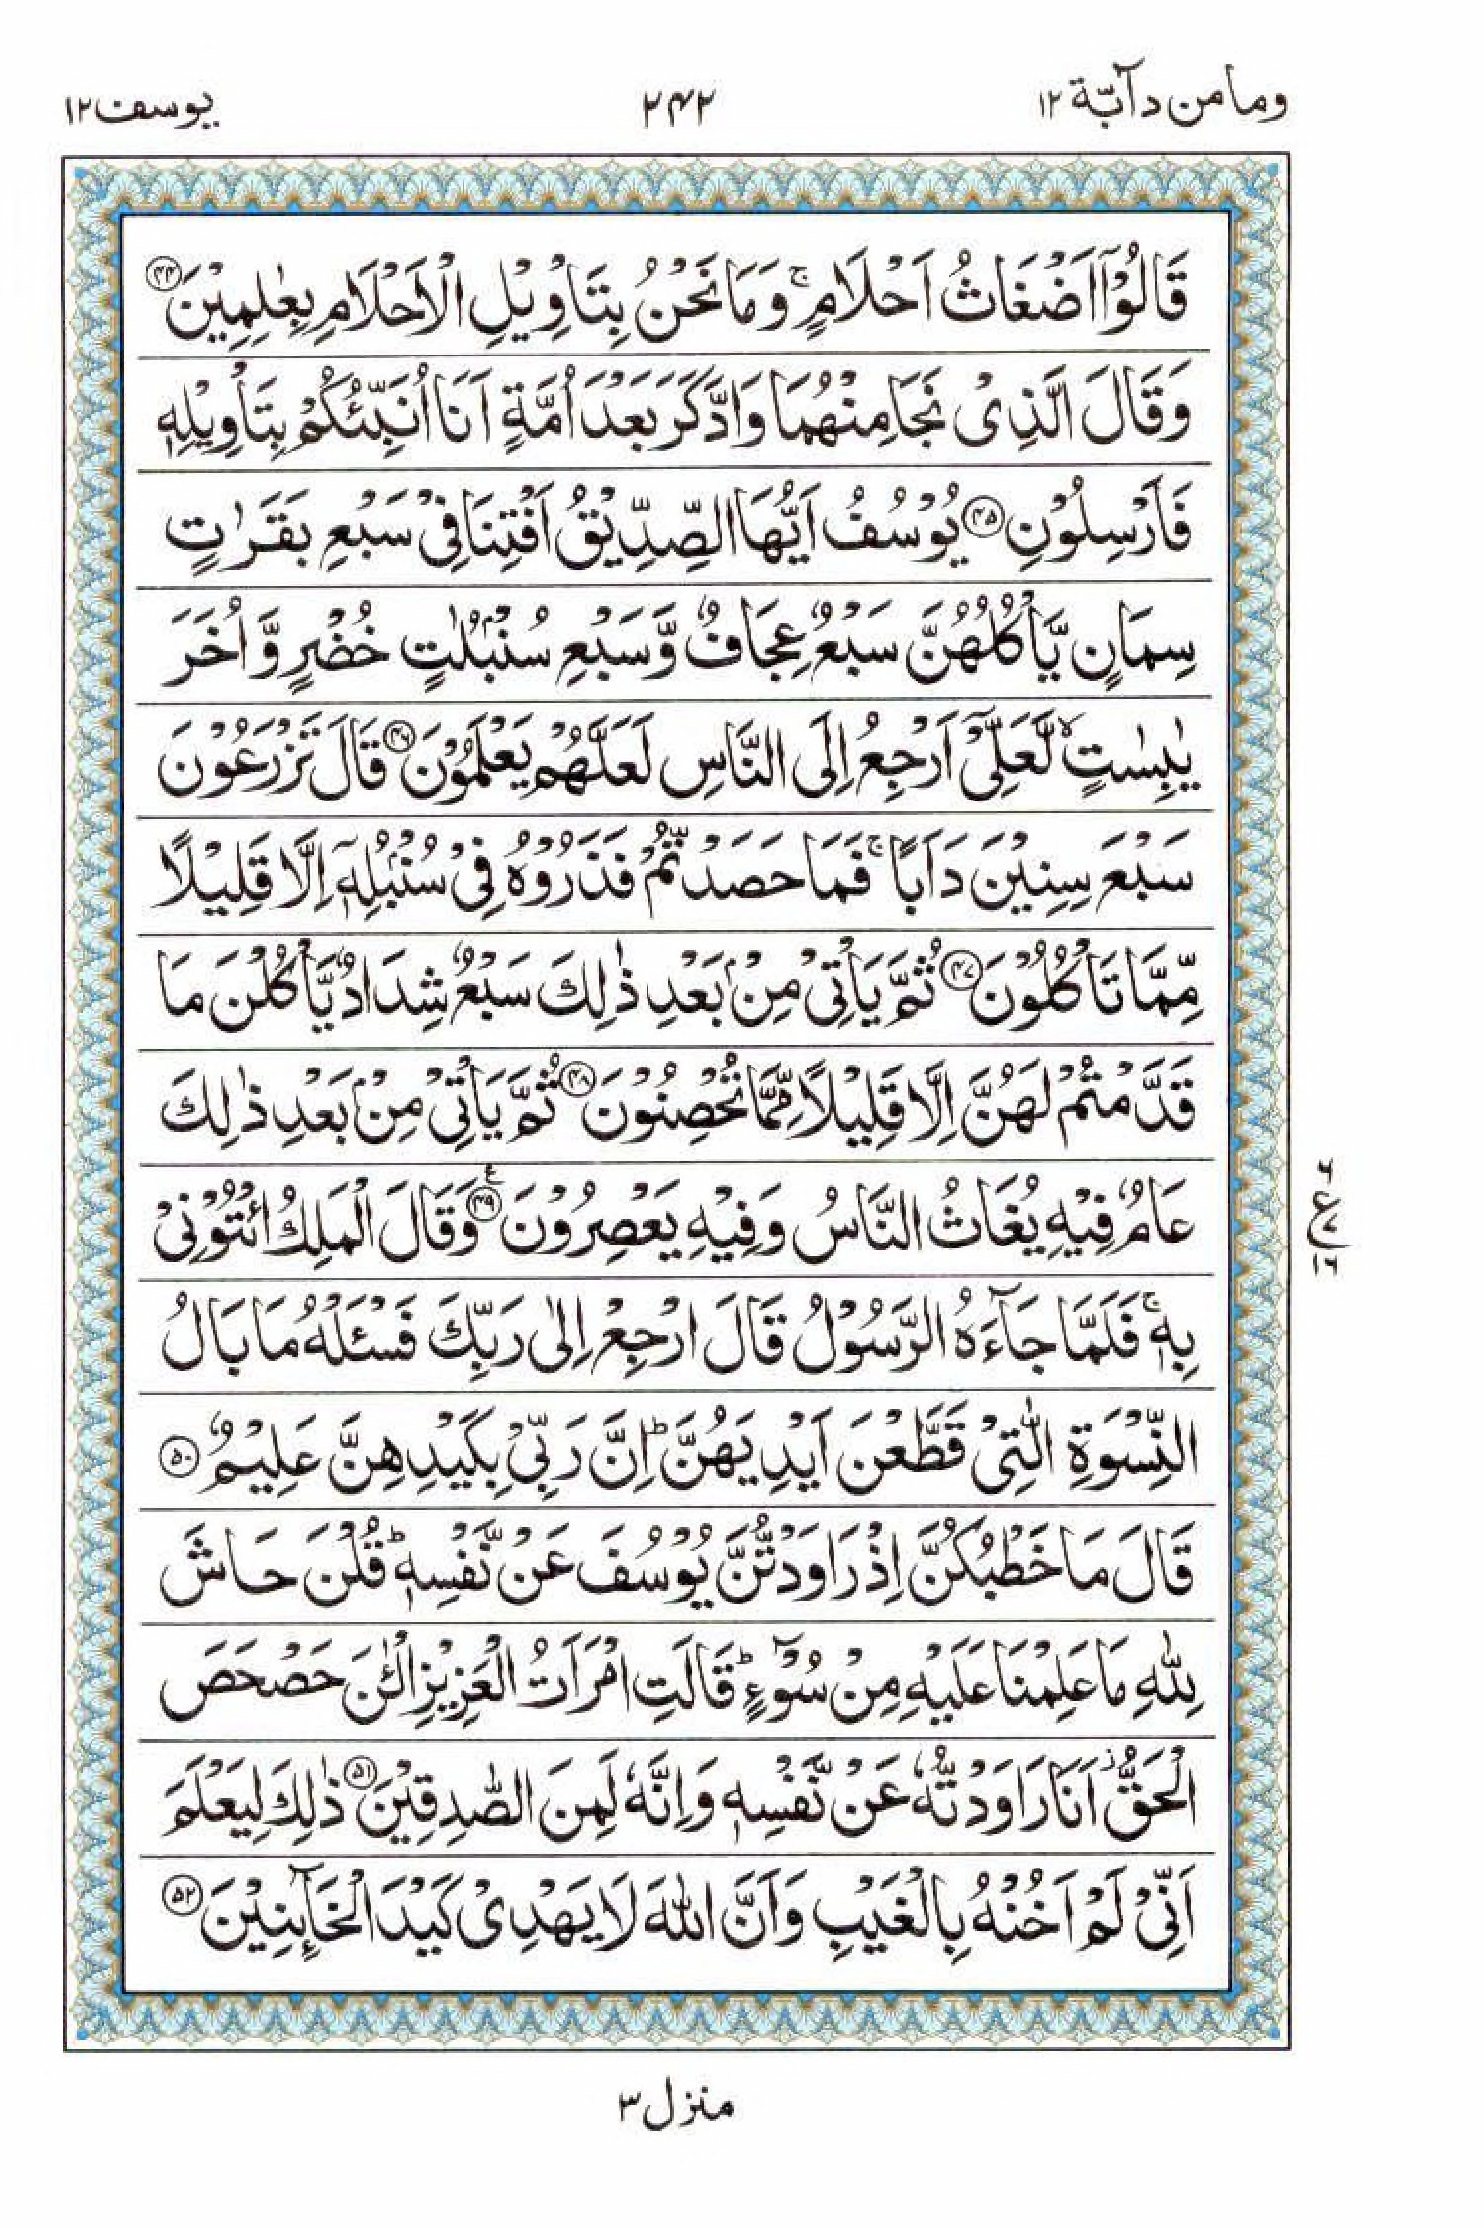 وما من دآبّة ١٢
٢٤٢
يوسف ١٢
قَالُوْٓا اَضْغَاثُ اَحْلَامٍ ۚ وَمَا نَحْنُ بِتَاْوِيْلِ الْاَحْلَامِ بِعٰلِمِيْنَ ﴿۴۴﴾
وَقَالَ الَّذِیْ نَجَا مِنْهُمَا وَادَّكَرَ بَعْدَ اُمَّةٍ اَنَا اُنَبِّئُكُمْ بِتَاْوِيْلِهٖ
فَاَرْسِلُوْنِ ﴿۴۵﴾ يُوْسُفُ اَيُّهَا الصِّدِّيْقُ اَفْتِنَا فِیْ سَبْعِ بَقَرٰتٍ
سِمَانٍ يَّاْكُلُهُنَّ سَبْعٌ عِجَافٌ وَّسَبْعِ سُنْۢبُلٰتٍ خُضْرٍ وَّاُخَرَ
يٰبِسٰتٍ ۙ لَّعَلِّیْٓ اَرْجِعُ اِلَى النَّاسِ لَعَلَّهُمْ يَعْلَمُوْنَ ﴿۴۶﴾ قَالَ تَزْرَعُوْنَ
سَبْعَ سِنِيْنَ دَاَبًا ۚ فَمَا حَصَدْتُّمْ فَذَرُوْهُ فِیْ سُنْۢبُلِهٖٓ اِلَّا قَلِيْلًا
مِّمَّا تَاْكُلُوْنَ ﴿۴۷﴾ ثُمَّ يَاْتِیْ مِنْۢ بَعْدِ ذٰلِكَ سَبْعٌ شِدَادٌ يَّاْكُلْنَ مَا
قَدَّمْتُمْ لَهُنَّ اِلَّا قَلِيْلًا مِّمَّا تُحْصِنُوْنَ ﴿۴۸﴾ ثُمَّ يَاْتِیْ مِنْۢ بَعْدِ ذٰلِكَ
عَامٌ فِيْهِ يُغَاثُ النَّاسُ وَفِيْهِ يَعْصِرُوْنَ ﴿۴۹﴾ ع وَقَالَ الْمَلِكُ ائْتُوْنِیْ
٦ ع ٧ ١٦
بِهٖ ۚ فَلَمَّا جَآءَهُ الرَّسُوْلُ قَالَ ارْجِعْ اِلٰى رَبِّكَ فَسْـَٔلْهُ مَا بَالُ
النِّسْوَةِ الّٰتِیْ قَطَّعْنَ اَيْدِيَهُنَّ ؕ اِنَّ رَبِّیْ بِكَيْدِهِنَّ عَلِيْمٌ ﴿۵۰﴾
قَالَ مَا خَطْبُكُنَّ اِذْ رَاوَدْتُّنَّ يُوْسُفَ عَنْ نَّفْسِهٖ ؕ قُلْنَ حَاشَ
لِلّٰهِ مَا عَلِمْنَا عَلَيْهِ مِنْ سُوْٓءٍ ؕ قَالَتِ امْرَاَتُ الْعَزِيْزِ الْـٰٔنَ حَصْحَصَ
الْحَقُّ ۫ اَنَا رَاوَدْتُّهٗ عَنْ نَّفْسِهٖ وَاِنَّهٗ لَمِنَ الصّٰدِقِيْنَ ﴿۵۱﴾ ذٰلِكَ لِيَعْلَمَ
اَنِّیْ لَمْ اَخُنْهُ بِالْغَيْبِ وَاَنَّ اللّٰهَ لَا يَهْدِیْ كَيْدَ الْخَآئِنِيْنَ ﴿۵۲﴾
منزل ٣